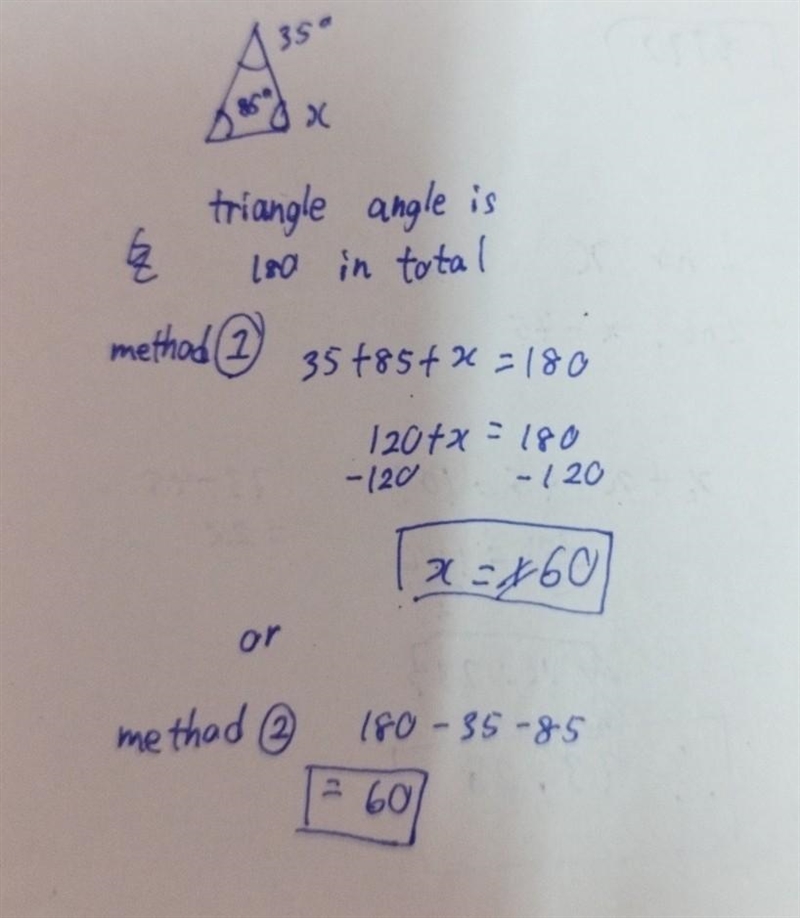 35°
85° x
triangle angle is
180 in total
method ① 35+85+x=180
120+x=180
-120 -120
x=60
or
method ② 180-35-85
=60